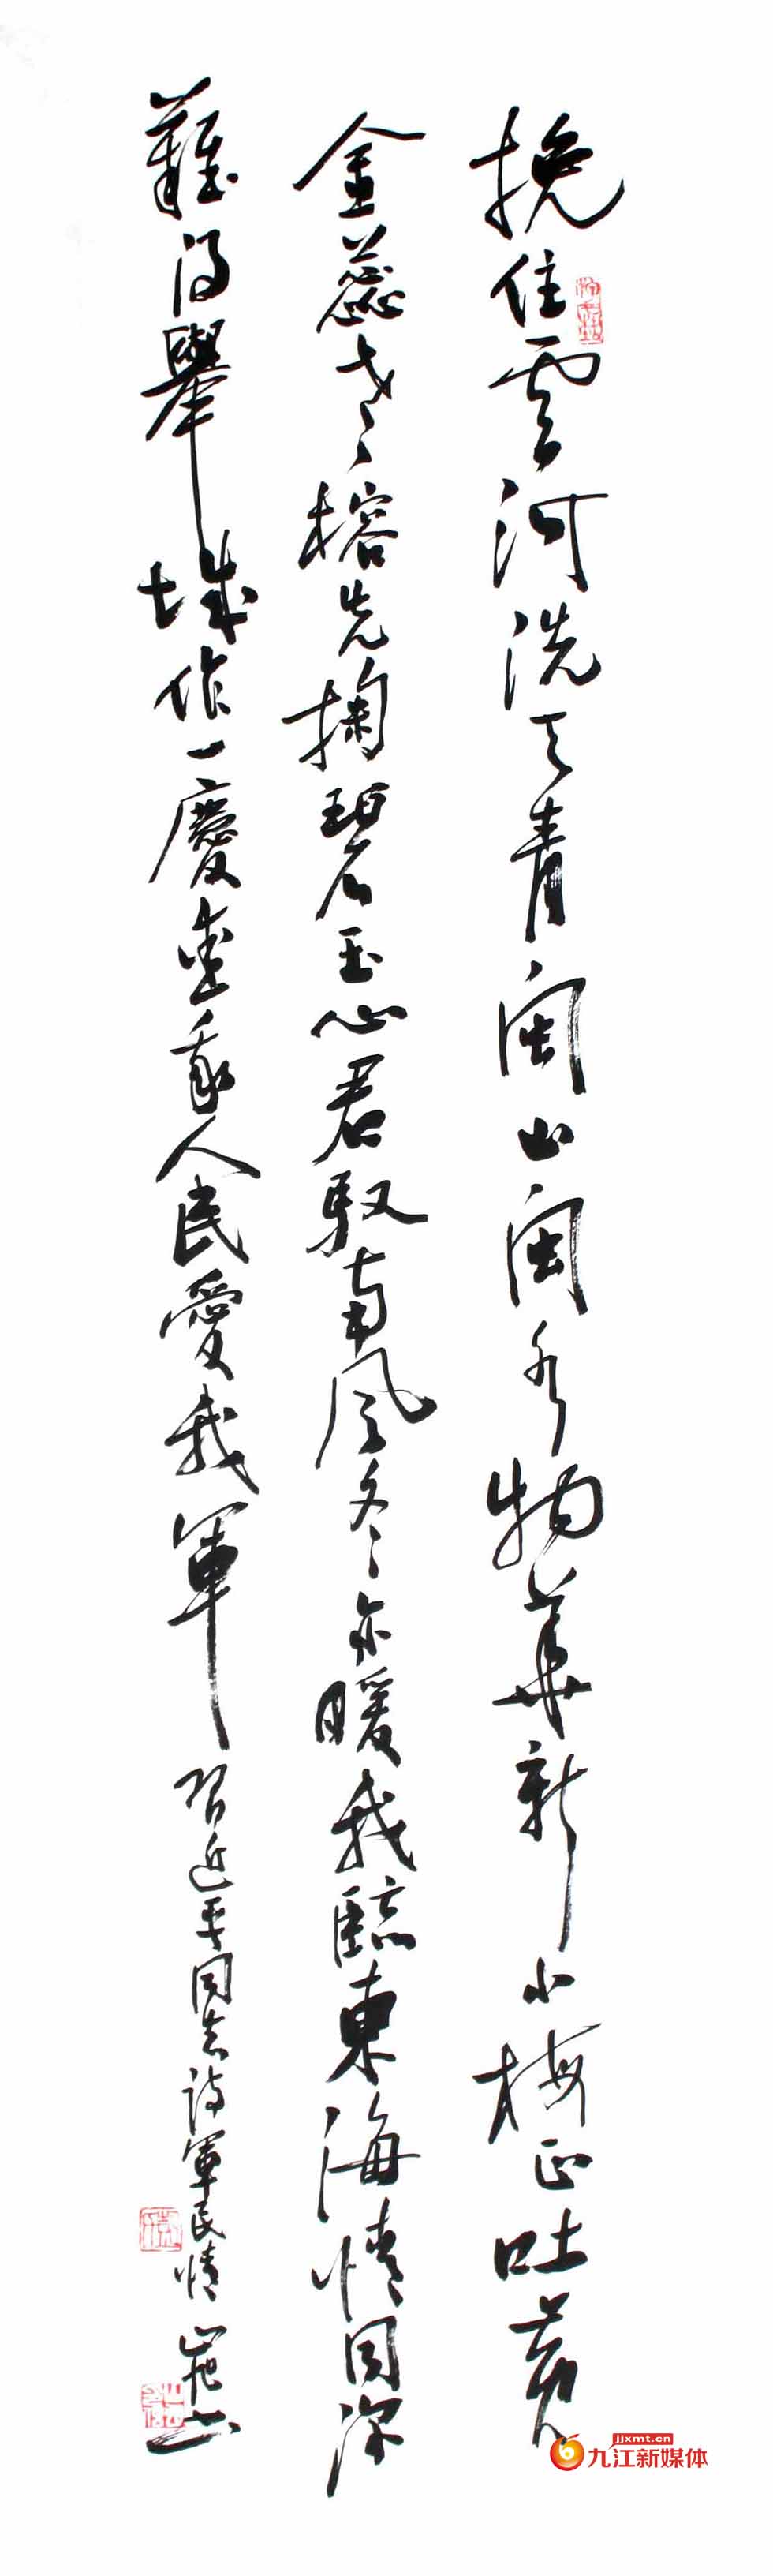 挽住雲河洗天青闽山闽水物華新小梅正吐黄
金蕊老榕先掬碧玉心君驭南风冬亦暖我臨東海情同深
難得舉城作一慶愛我人民愛我軍
習近平同志詩軍民情
jjxmt.cn
九江新媒体